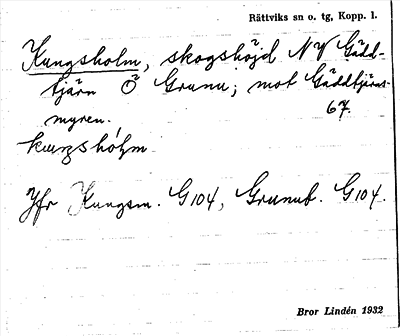 Rättviks sn o. tg, Kopp. l.
Kungsholm, skogshöjd N V Gädd-
tjärn Ö Grunu; mot Gäddtjärns-
67
myren.
kuŋshòlm
Jfr Kungsm. G104, Grunub. G104.
Bror Lindén 1932